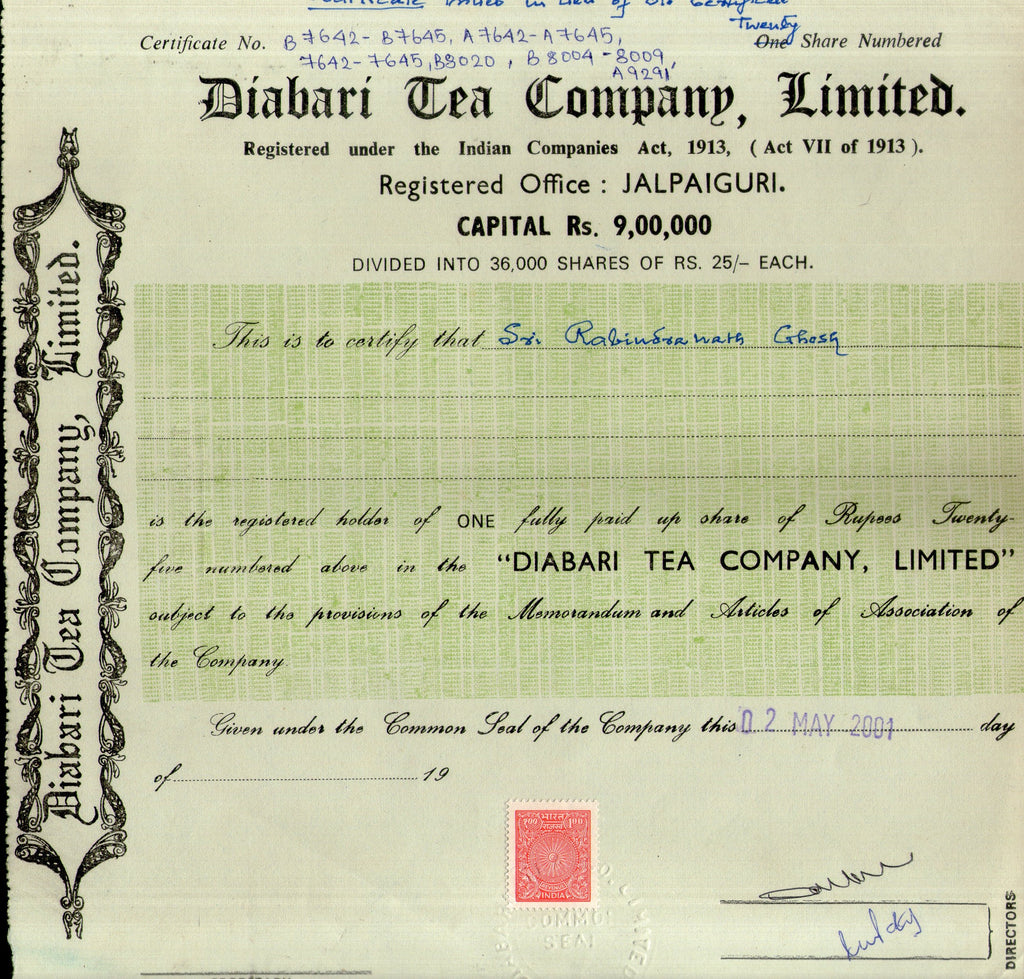 Certificate issued in lieu of old Certificate
Twenty
Certificate No. B7642-B7645, A7642-A7645, One Share Numbered
7642-7645, B8020, B8004-8009,
A9291,
Diabari Tea Company, Limited.
Registered under the Indian Companies Act, 1913, (Act VII of 1913).
Registered Office : JALPAIGURI.
CAPITAL Rs. 9,00,000
DIVIDED INTO 36,000 SHARES OF RS. 25/- EACH.
This is to certify that Sri Rabindranath Ghosh
is the registered holder of ONE fully paid up share of Rupees Twenty-
five numbered above in the "DIABARI TEA COMPANY, LIMITED"
subject to the provisions of the Memorandum and Articles of Association of
the Company.
Given under the Common Seal of the Company this 02 MAY 2001 day
of 19
Diabari Tea Company, Limited.
भारत
100 राजस्व 100
REVENUE
INDIA
COMMON
SEAL
DIRECTORS